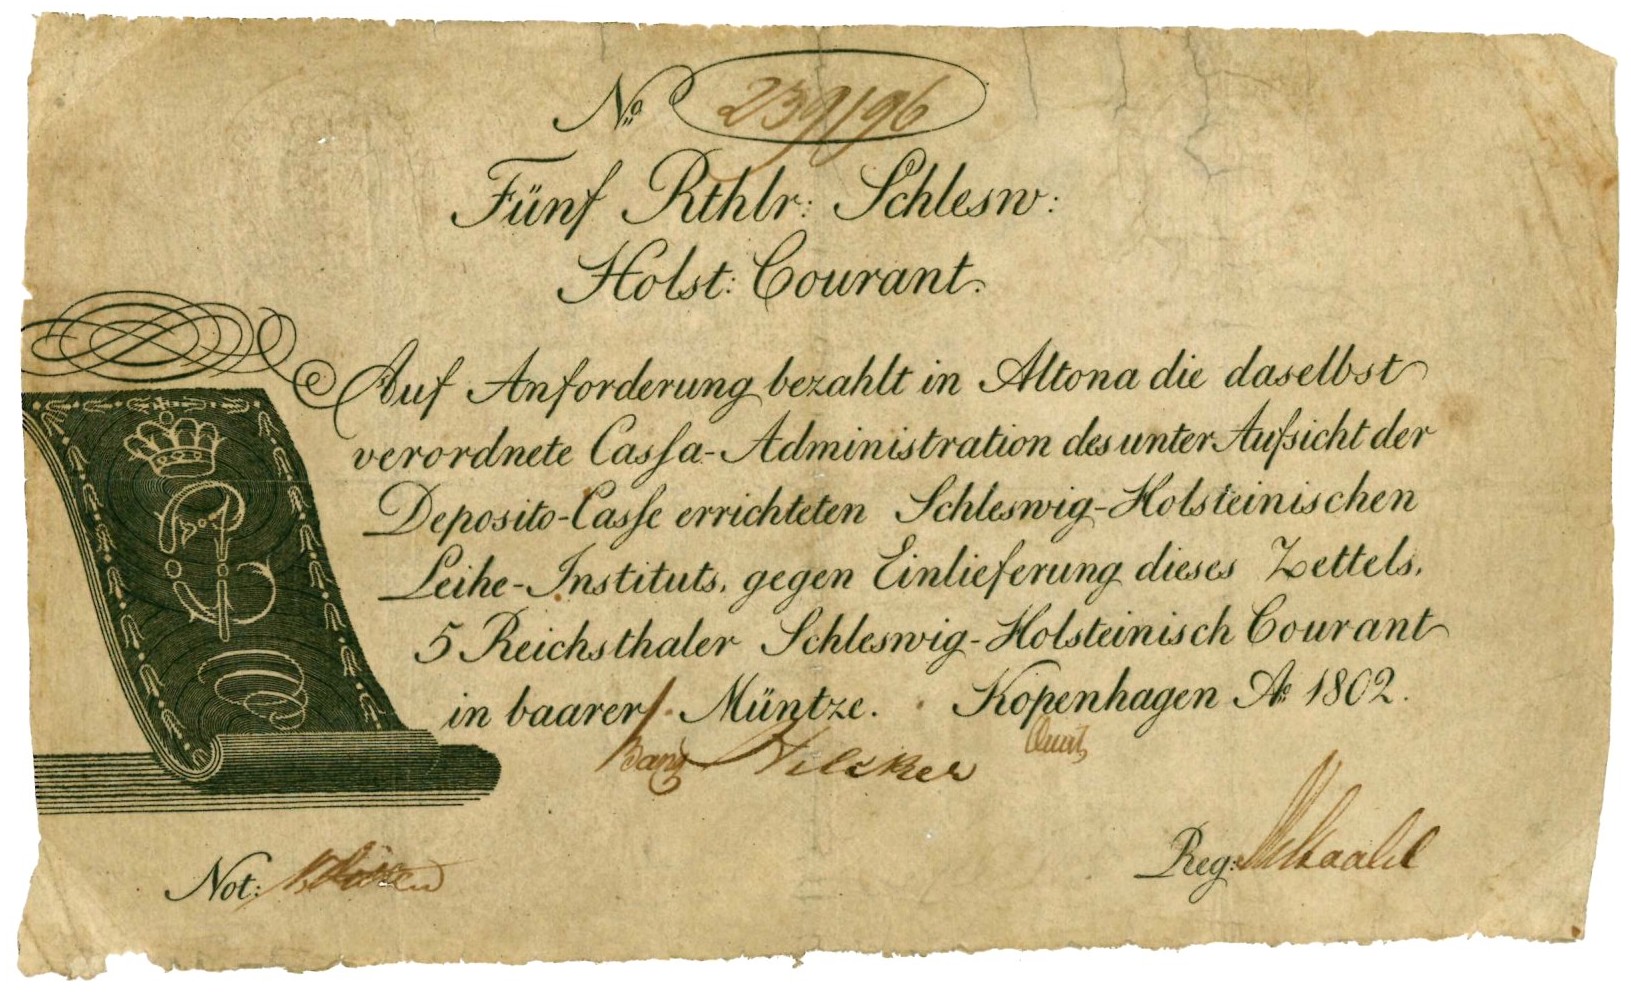 No 239196
Fünf Rthlr: Schlesw:
Holst: Courant.
Auf Anforderung bezahlt in Altona die daselbst
verordnete Cassa-Administration des unter Aufsicht der
Deposito-Casse errichteten Schleswig-Holsteinischen
Leihe-Instituts, gegen Einlieferung dieses Zettels,
5 Reichsthaler Schleswig-Holsteinisch Courant
in baarer Müntze. Kopenhagen Ao 1802.
Not:
Reg: